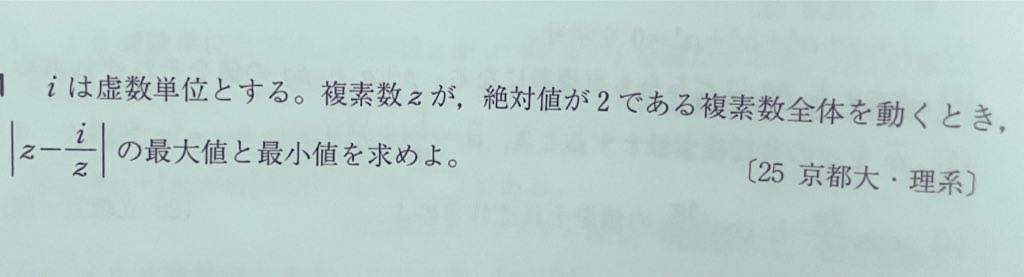 iは虚数単位とする。複素数zが，絶対値が2である複素数全体を動くとき，
|z−i/z|の最大値と最小値を求めよ。
〔25 京都大・理系〕